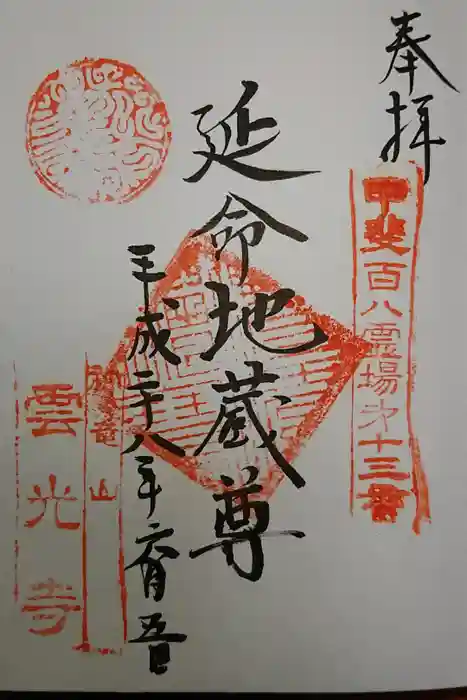 奉拝
甲斐百八霊場第十三番
延命地蔵尊
平成二十八年六月五日
山
雲光寺